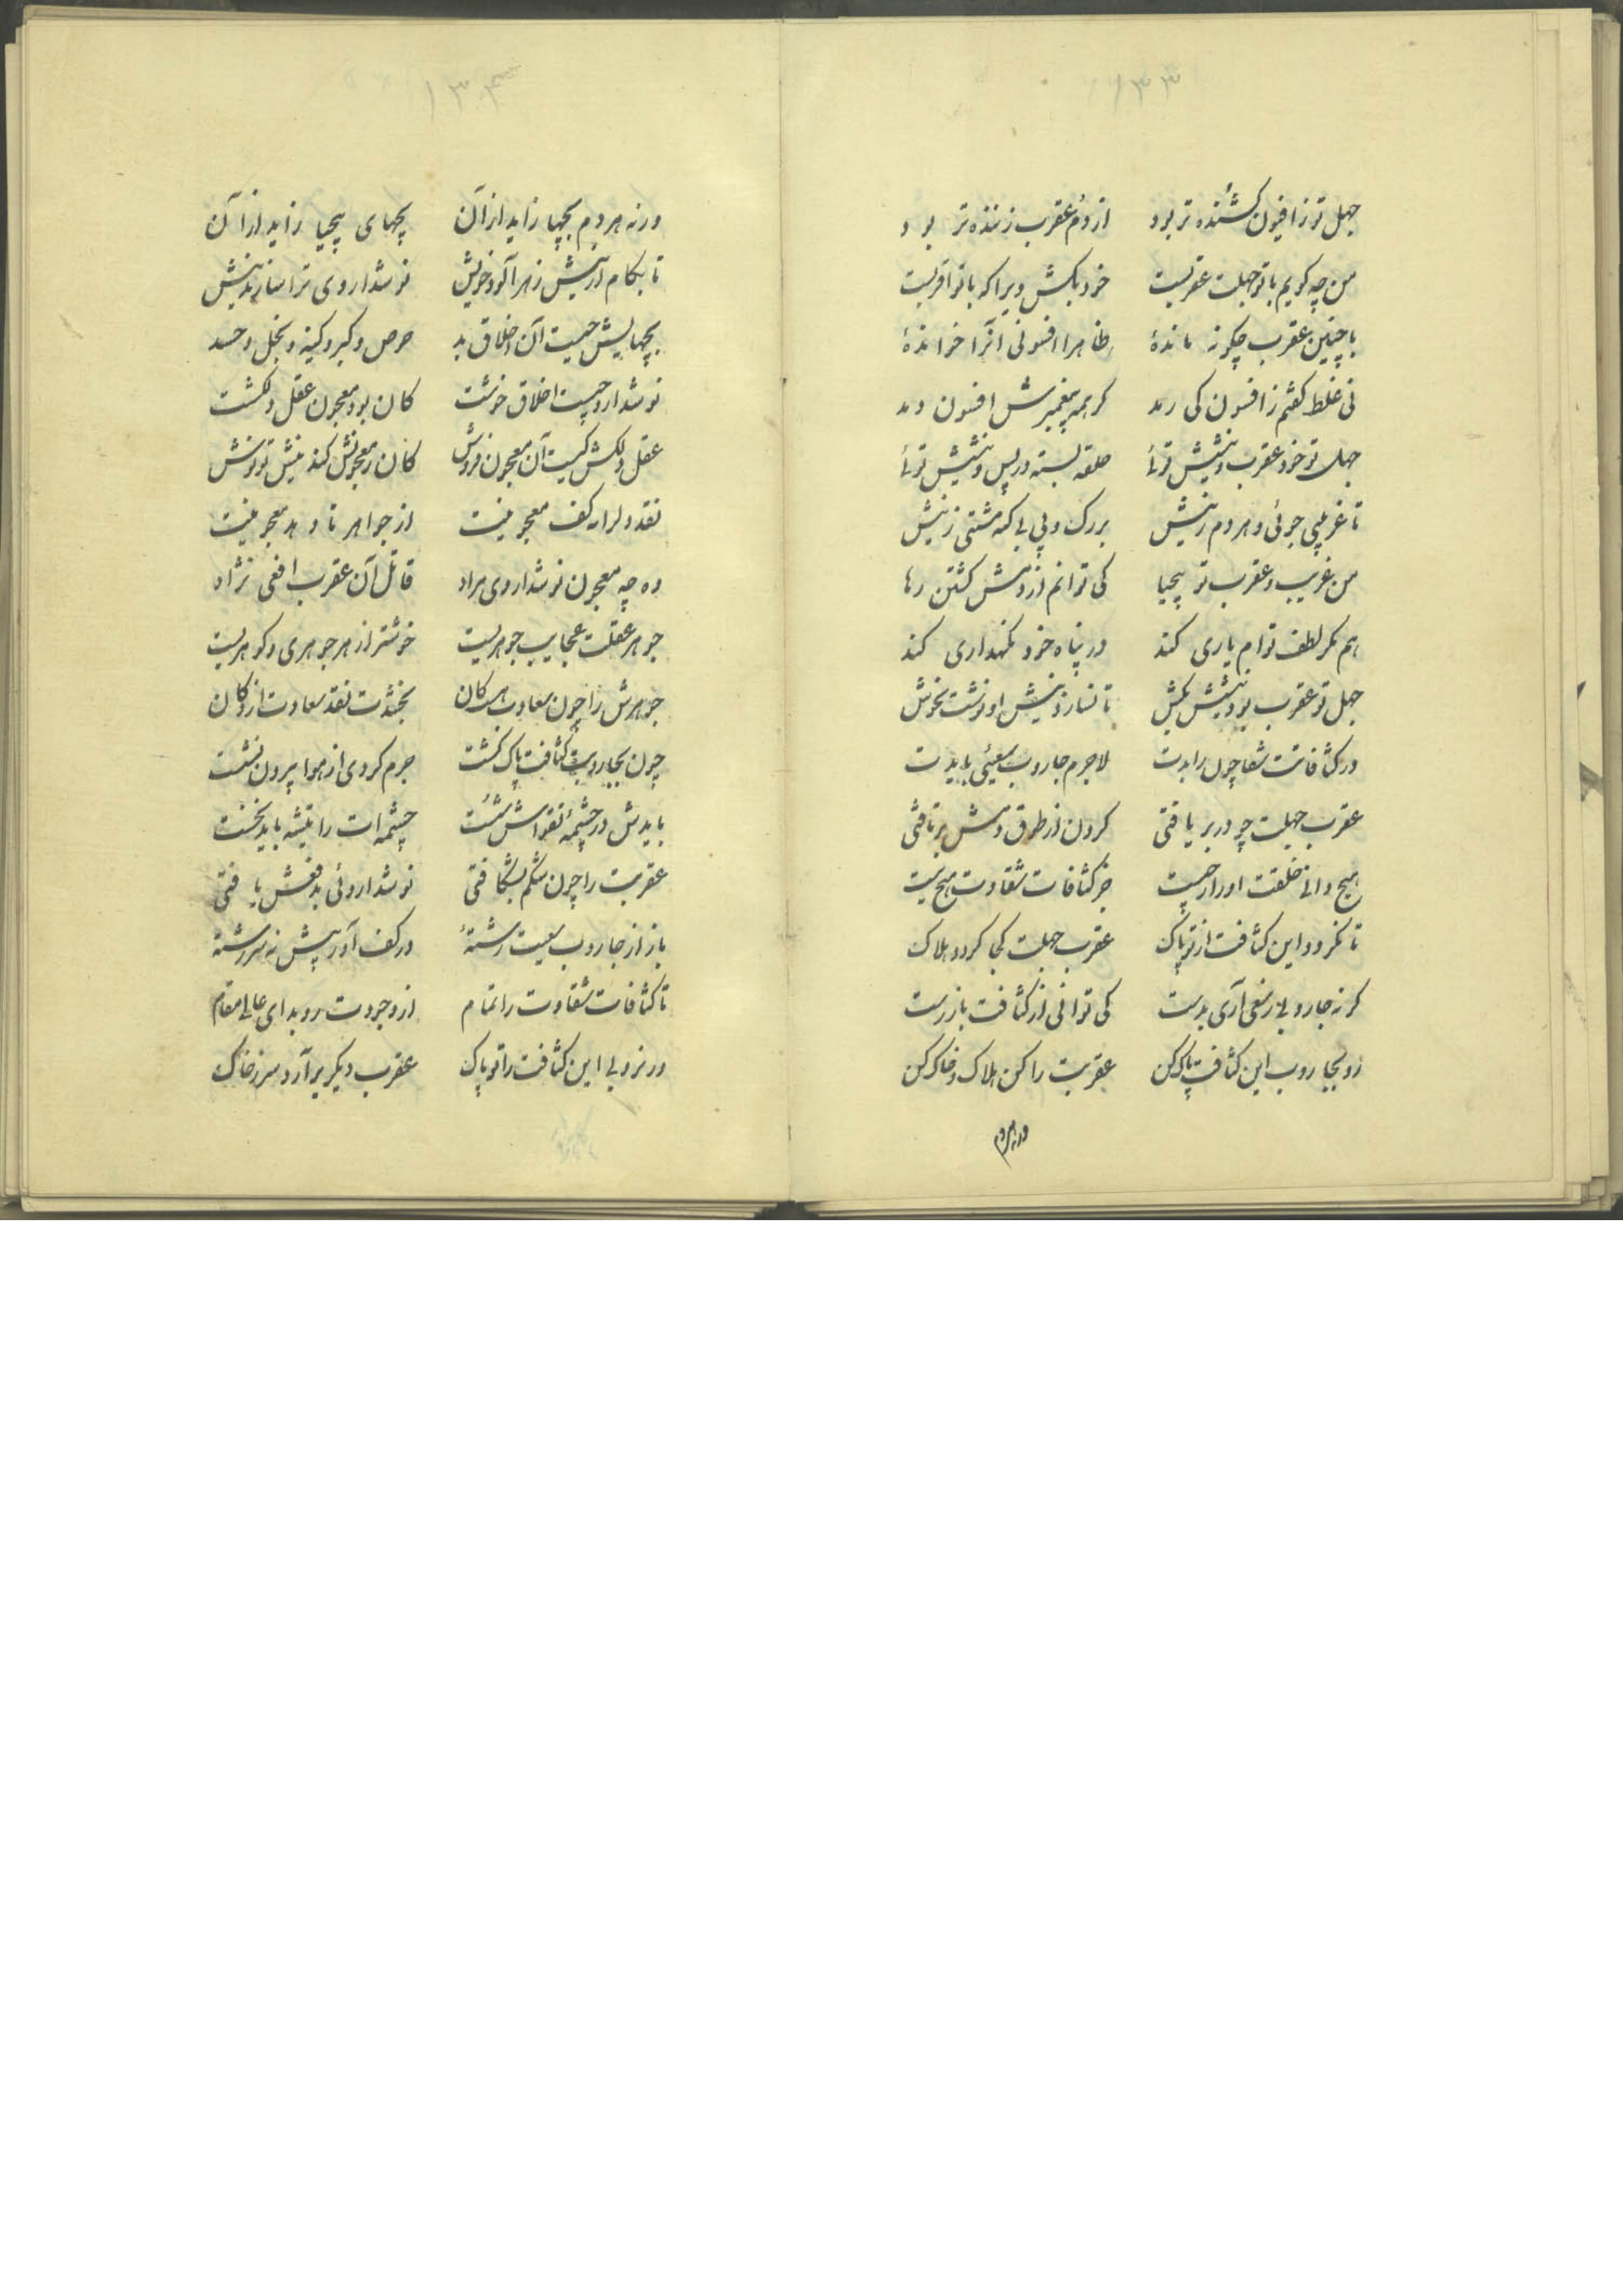 ۱۳۳
جهل تو ز افیون کشنده تر بود از دم عقرب زننده تر بود
من چه کویم با تو جهلت عقربیست خود بکش ویرا که با تو اقربیست
با چنین عقرب چکونه ماندهٔ ظاهرا افسونی آنرا خواندهٔ
نی غلط کفتم ز افسون کی رمد کر همه پیغمبرش افسون دمد
جهل تو خود عقرب و نیشش توئی حلقه بسته در پس و پیشش توئی
تا غریبی جوئی و هر دم ز نیش بررک و پی کشتی ز نیش
من غریب و عقرب تو بیحیا کی توانم از دمش کشتن رها
هم مکر لطف توام یاری کند در پناه خود نکهداری کند
جهل تو عقرب بود نیشش بکش تا نسازد نیش او نوشت بخوش
در کثافاتت شقا چون رابدت لاجرم جاروب سعیی بایدت
عقرب جهلت چو در بر یافتی کردن از طوق دمش برتافتی
هیچ دانی خلقت او را ز چیست جز کثافات شقاوت هیچ نیست
تا نکردد این کثافت از تو پاک عقرب جهلت کجا کردد هلاک
کر نه جاروبی ز سعی آری بدست کی توانی از کثافت باز رست
رو بجاروب این کثافت پاک کن عقربت را کن هلاک و خاک کن
ورنه هردم
۱۳۴
ورنه هردم بچها زاید از آن بچهای بیحیا زاید از آن
تا بکام از نیش زهرآلود خویش نوشداروی ترا سازند نیش
بچهایش چیست آن اخلاق بد حرص و کبر و کینه و بخل و حسد
نوشدارو چیست اخلاق خوشت کان بود معجون عقل دلکشت
عقل دلکش کیست آن معجون فروش کان ز معجونش کند نیش تو نوش
نقد دل را در کف معجونیست از جواهر تا دهد معجونیت
وه چه معجون نوشداروی مراد قاتل آن عقرب افعی نژاد
جوهر عقلت عجایب جوهریست خوشتر از هر جوهری و کوهریست
جوهرش را چون سعادت هست کان بخشدت نقد سعادت از دکان
چون بجاروبیت کثافت پاک کشت جرم کردی از هوا بیرون نشت
بایدش در چشمهٔ تقواش شست چشمه ات را تیشه باید نخست
عقربت را چون شکم بشکافتی نوشداروئی بدفعش یافتی
باز از جاروب سعیت رشتهٔ در کف آور پیش نه سررشتهٔ
تا کثافات شقاوت را تمام از وجودت روبد ای عالی مقام
ور نروبی این کثافت را تو پاک عقرب دیکر برآرد سر ز خاک